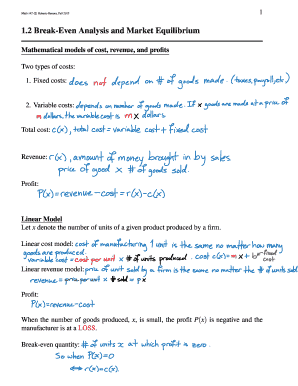 Math 141-52, Roberto Pelayo, Fall 2017
1
1.2 Break-Even Analysis and Market Equilibrium
Mathematical models of cost, revenue, and profits
Two types of costs:
1. Fixed costs: does not depend on # of goods made. (taxes, payroll, etc)
2. Variable costs: depends on number of goods made. If x goods are made at a price of
m dollars, the variable cost is mx dollars
Total cost: c(x), total cost = variable cost + fixed cost
Revenue: r(x), amount of money brought in by sales
price of good x # of goods sold.
Profit:
P(x) = revenue - cost = r(x) - c(x)
Linear Model
Let x denote the number of units of a given product produced by a firm.
Linear cost model: cost of manufacturing 1 unit is the same no matter how many
goods are produced.
variable cost = cost per unit x # of units produced. cost c(x) = mx + b ← fixed cost
Linear revenue model: price of unit sold by a firm is the same no matter the # of units sold
revenue = price per unit x # sold = px
Profit:
P(x) = revenue - cost
When the number of goods produced, x, is small, the profit P(x) is negative and the
manufacturer is at a LOSS.
Break-even quantity: # of units x at which profit is zero.
So when P(x) = 0
⟺ r(x) = c(x).